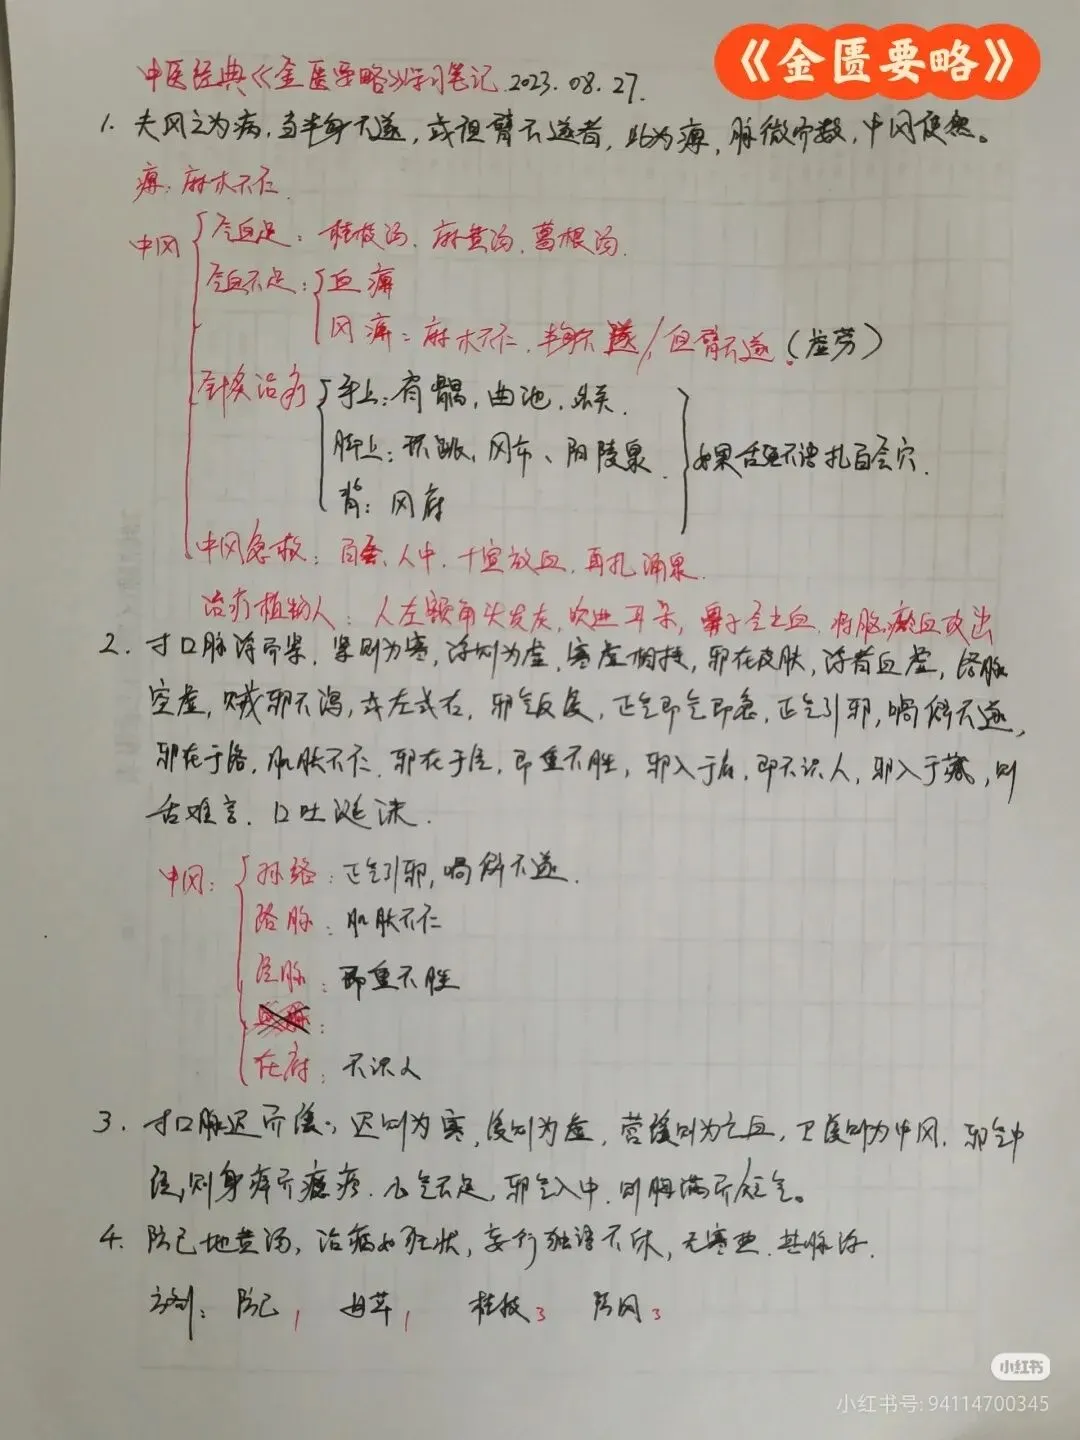 《金匮要略》
中医经典《金匮要略》学习笔记.2023.08.27.
1. 夫风之为病,当半身不遂,或但臂不遂者,此为痹,脉微而数,中风使然。
痹:麻木不仁.
中风
气血足:桂枝汤.麻黄汤.葛根汤.
气血不足:血痹
风痹:麻木不仁.半身不遂/但臂不遂.(虚劳)
针灸治疗
手上:肩髃,曲池,
脚上:环跳,风市、阳陵泉
背:风府
如果舌强不语扎百会穴.
中风急救:百会.人中.十宣放血.再扎涌泉.
治疗植物人:人左额角头发灰,吹进耳朵,鼻子会出血.将脑瘀血放出
2. 寸口脉浮而紧,紧则为寒,浮则为虚,寒虚相搏,邪在皮肤,浮者血虚,络脉
空虚,贼邪不泻,或左或右,邪气反缓,正气即气即急,正气引邪,喎僻不遂,
邪在于络,肌肤不仁.邪在于经,即重不胜,邪入于府,即不识人,邪入于藏,则
舌难言.口吐涎沫.
中风:
孙络:正气引邪,喎僻不遂.
络脉:肌肤不仁
经脉:即重不胜
在府:不识人
3. 寸口脉迟而缓,迟则为寒,缓则为虚,营缓则为亡血,卫缓则为中风.邪气中
经,则身痒而瘾疹.心气不足,邪气入中.则胸满而短气。
4. 防己地黄汤,治病如狂状,妄行独语不休,无寒热.其脉浮.
方剂:防己1 甘草1 桂枝3 防风3
小红书
小红书号:94114700345